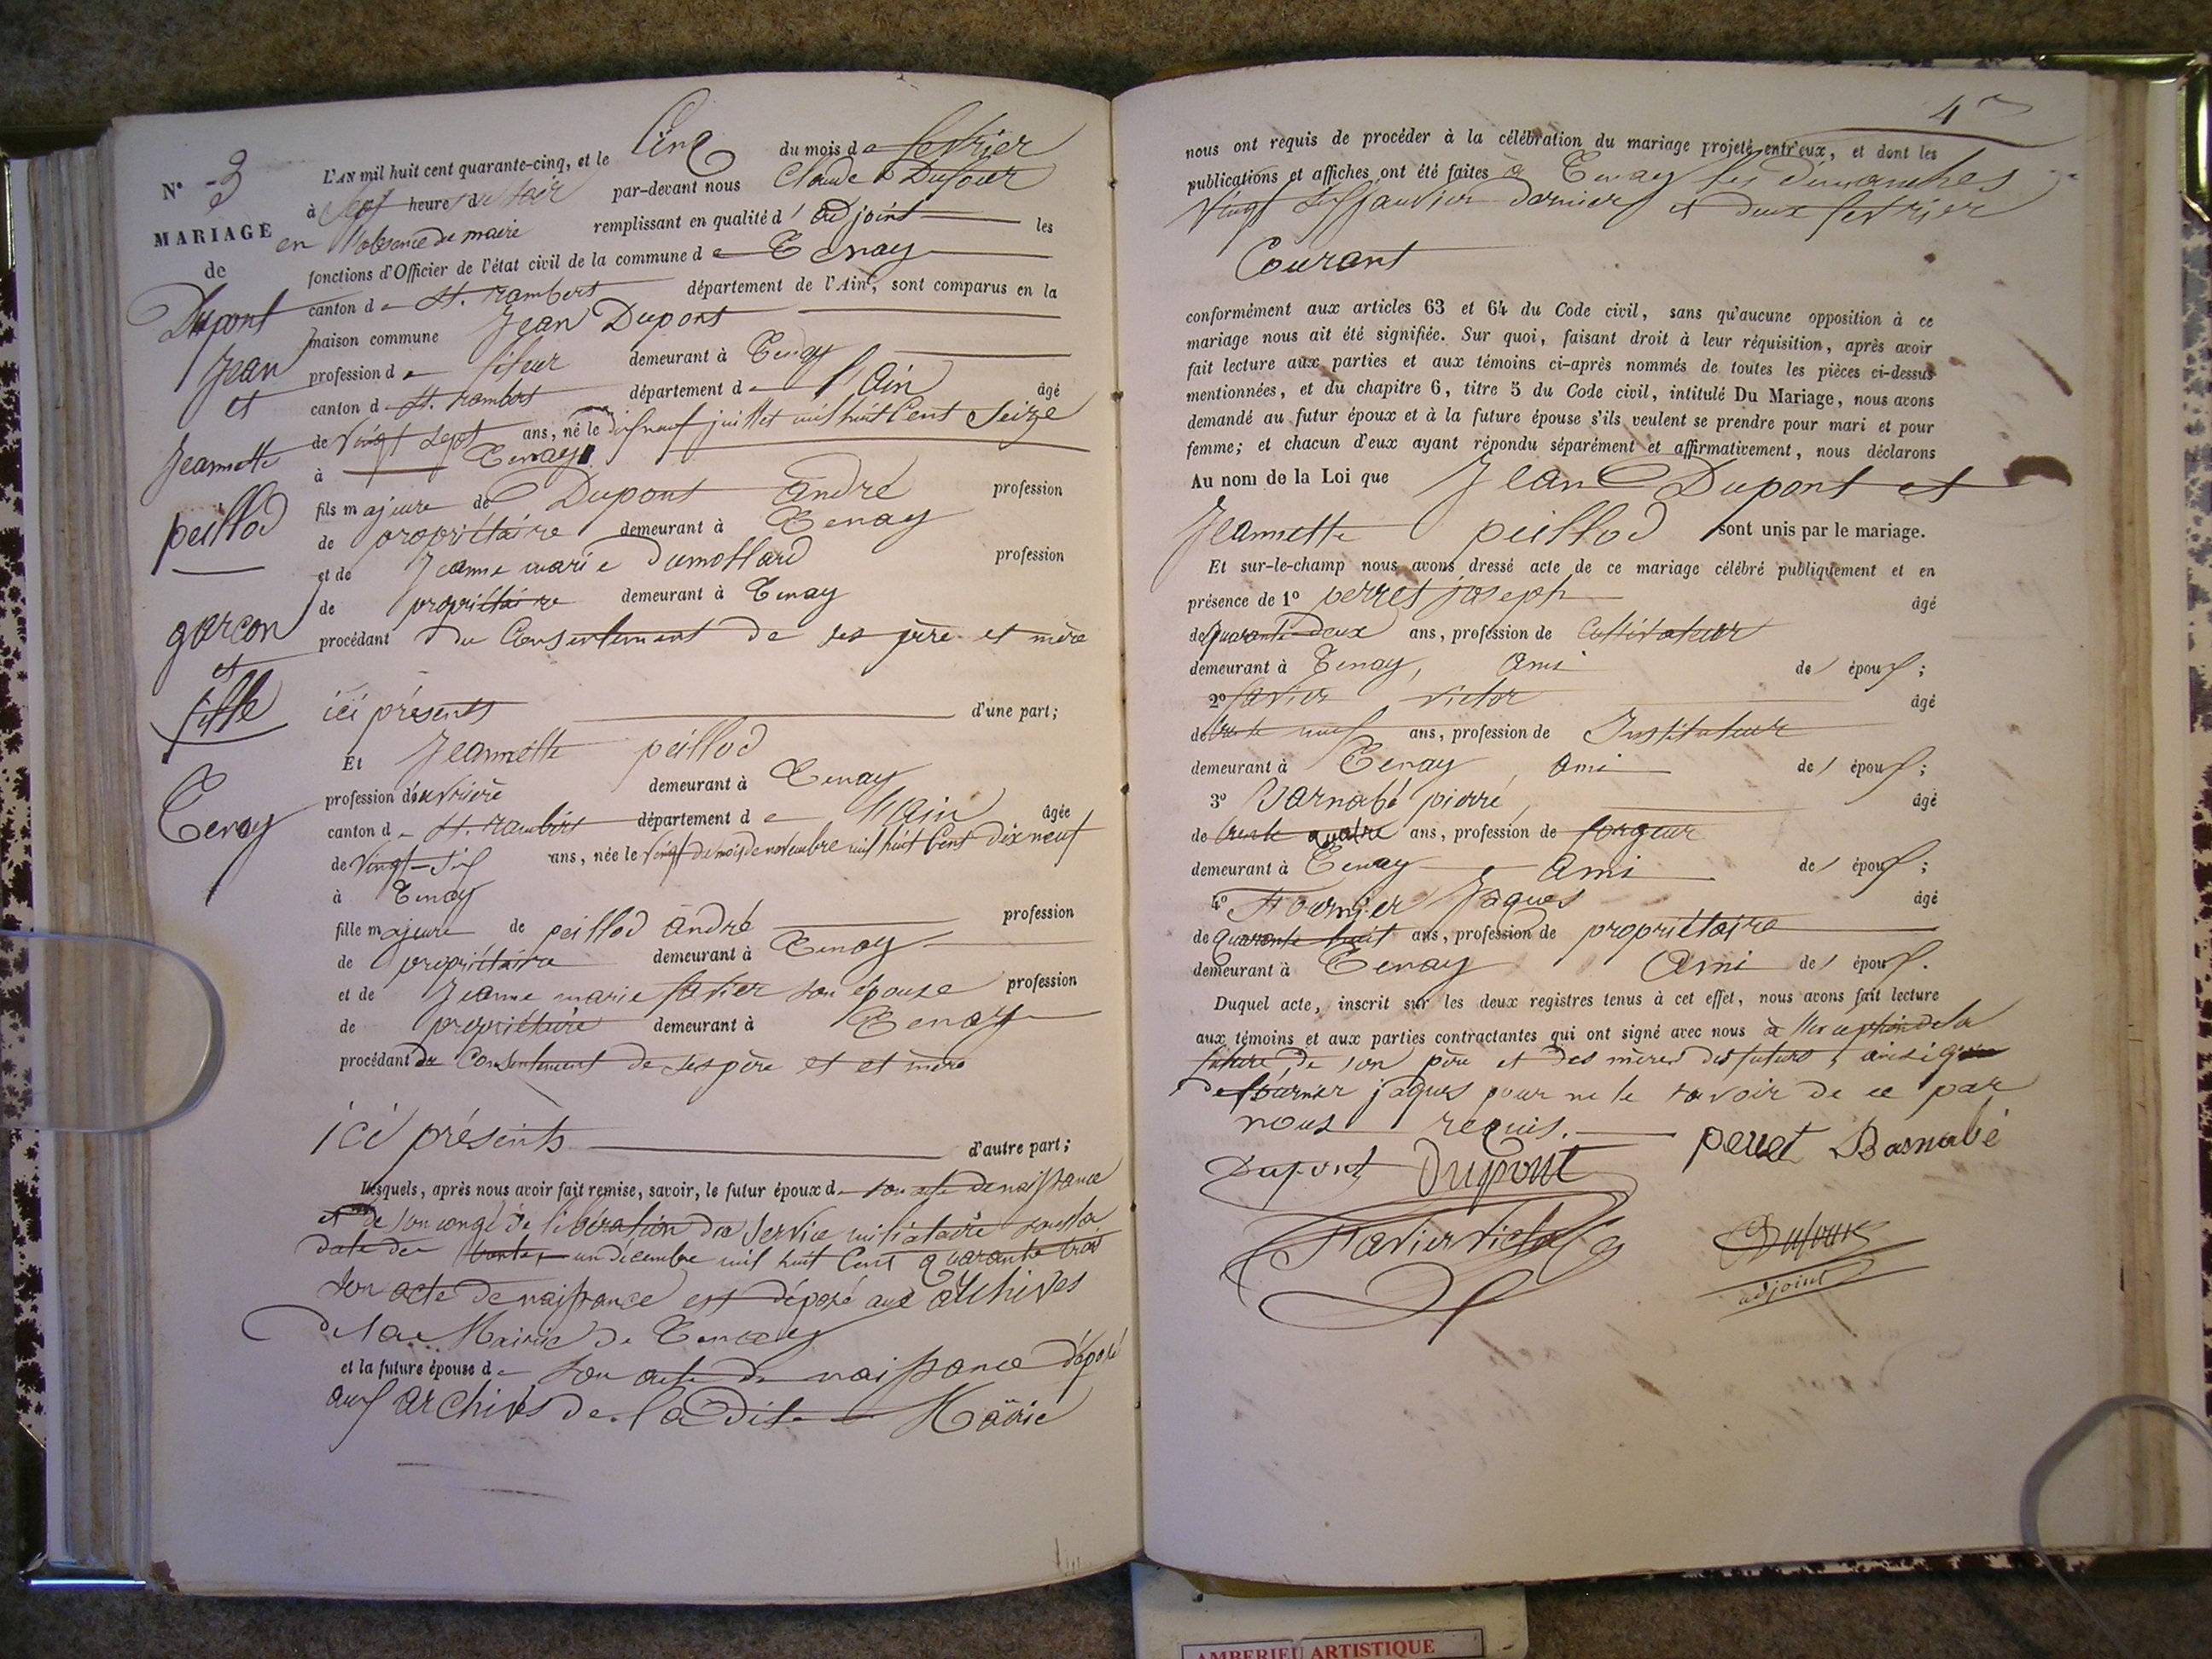 N° 3
MARIAGE
de
Dupont
Jean
et
Jeannette
peillod
garcon
et
fille
Tenay
L'AN mil huit cent quarante-cinq, et le Cinq du mois de fevrier
à heure du soir par-devant nous Claude Dufour
en l'absence du maire remplissant en qualité d'adjoint les
fonctions d'Officier de l'état civil de la commune de Tenay
canton de St. rambert département de l'Ain, sont comparus en la
maison commune Jean Dupont
profession de demeurant à Tenay
canton d St. rambert département de l'Ain âgé
de Vingt sept ans, né le dix neuf juillet mil huit Cent Seize
à Tenay
fils majeure de Dupont andré profession
de propriétaire demeurant à Tenay
et de Jeanne marie Dumollard profession
de propriétaire demeurant à Tenay
procédant du Consentement de ses père et mère
ici présents d'une part;
Et Jeannette peillod
profession d'ouvrière demeurant à Tenay
canton de St. rambert département de l'ain âgée
de Vingt-Six ans, née le Vingt du mois de novembre mil huit Cent dix neuf
à Tenay
fille majeure de peillod andré profession
de propriétaire demeurant à Tenay
et de Jeanne marie favier son épouse profession
de propriétaire demeurant à Tenay
procédant du Consentement de ses père et et mère
ici présents d'autre part;
Lesquels, après nous avoir fait remise, savoir, le futur époux de son acte de naissance
et de son congé de libération du Service militaire sous la
date du trente un decembre mil huit Cent quarante trois
Son acte de naissance est déposé aux archives
de la Mairie de Tenay
et la future épouse de son acte de naissance déposé
aux archives de la dite Mairie
4
nous ont requis de procéder à la célébration du mariage projeté entr'eux, et dont les
publications et affiches ont été faites à Tenay les dimanches
Vingt Six janvier dernier et deux fevrier
Courant
conformément aux articles 63 et 64 du Code civil, sans qu'aucune opposition à ce
mariage nous ait été signifiée. Sur quoi, faisant droit à leur réquisition, après avoir
fait lecture aux parties et aux témoins ci-après nommés de toutes les pièces ci-dessus
mentionnées, et du chapitre 6, titre 5 du Code civil, intitulé Du Mariage, nous avons
demandé au futur époux et à la future épouse s'ils veulent se prendre pour mari et pour
femme; et chacun d'eux ayant répondu séparément et affirmativement, nous déclarons
Au nom de la Loi que Jean Dupont et
Jeannette peillod sont unis par le mariage.
Et sur-le-champ nous avons dressé acte de ce mariage célébré publiquement et en
présence de 1° perret joseph âgé
de quarante-deux ans, profession de Cultivateur
demeurant à Tenay, ami de époux;
2° favier victor âgé
de trente neuf ans, profession de Instituteur
demeurant à Tenay, ami de époux;
3° Barnabé pierre, âgé
de trente quatre ans, profession de forgeur
demeurant à Tenay Ami de époux;
4° Fournier Jaques âgé
de quarante huit ans, profession de propriétaire
demeurant à Tenay Ami de époux.
Duquel acte, inscrit sur les deux registres tenus à cet effet, nous avons fait lecture
aux témoins et aux parties contractantes qui ont signé avec nous à l'exception de la
future, de son père et des mères des futurs, ainsi que
de fournier jaques pour ne le savoir de ce par
nous requis.
perret Barnabé
Dupont Dupont
Favier Victor
Dufour
adjoint
AMBERIEU ARTISTIQUE